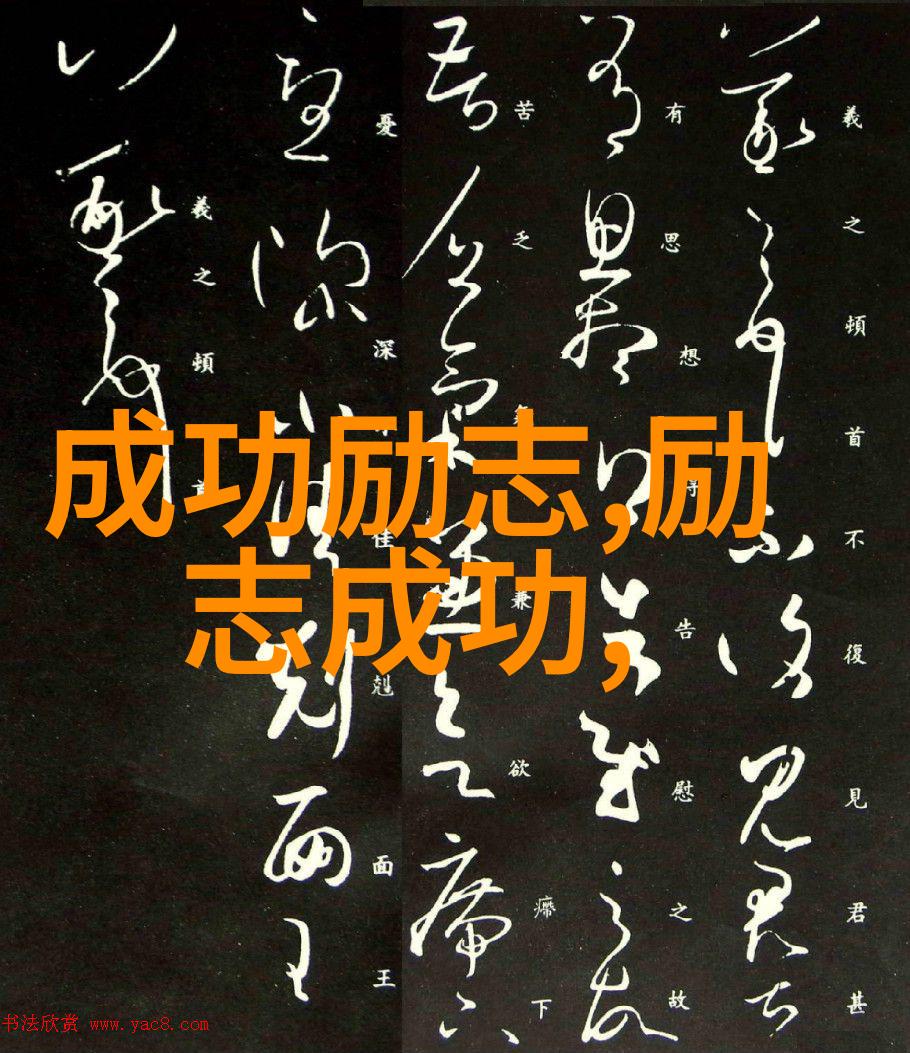 羲之頓首不復見君甚
有思想得告慰之故
苦乏兼欲㿃下
憂深佳剋面王
羲之頓首
成功励志,励
志成功,
书法欣赏 www.yac8.com